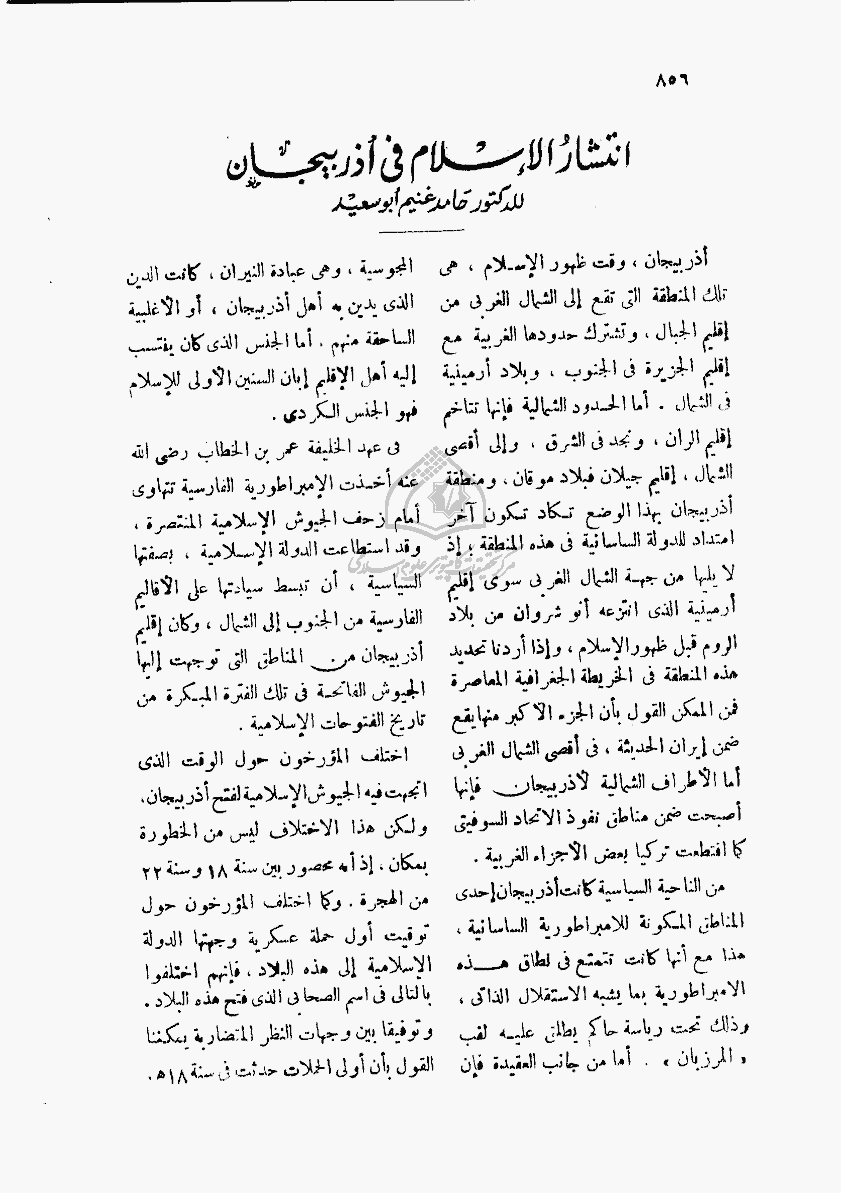 ٨٥٦
انتشارُ الإسلام فى أذربيجان
للدكتور حامد غنيم أبو سعيد
أذربيجان ، وقت ظهور الإسلام ، هى
تلك المنطقة التى تقع إلى الشمال الغربى من
إقليم الجبال ، وتشترك حدودها الغربية مع
إقليم الجزيرة فى الجنوب ، وبلاد أرمينية
فى الشمال . أما الحدود الشمالية فإنها تتاخم
إقليم الران ، ونجد فى الشرق ، وإلى أقصى
الشمال ، إقليم جيلان فبلاد موقان ، ومنطقة
أذربيجان بهذا الوضع تكاد تكون آخر
امتداد للدولة الساسانية فى هذه المنطقة ؛ إذ
لا يليها من جهة الشمال الغربى سوى إقليم
أرمينية الذى انتزعه أنو شروان من بلاد
الروم قبل ظهور الإسلام ، وإذا أردنا تحديد
هذه المنطقة فى الخريطة الجغرافية المعاصرة
فمن الممكن القول بأن الجزء الأكبر منها يقع
ضمن إيران الحديثة ، فى أقصى الشمال الغربى
أما الأطراف الشمالية لأذربيجان فإنها
أصبحت ضمن مناطق نفوذ الاتحاد السوفيتى
كما اقتطعت تركيا بعض الأجزاء الغربية .
من الناحية السياسية كانت أذربيجان إحدى
المناطق المكونة للامبراطورية الساسانية ،
هذا مع أنها كانت تتمتع فى نطاق هذه
الامبراطورية بما يشبه الاستقلال الذاتى ،
وذلك تحت رياسة حاكم يطلق عليه لقب
« المرزبان » . أما من جانب العقيدة فإن
المجوسية ، وهى عبادة النيران ، كانت الدين
الذى يدين به أهل أذربيجان ، أو الأغلبية
الساحقة منهم . أما الجنس الذى كان ينتسب
إليه أهل الإقليم إبان السنين الأولى للإسلام
فهو الجنس الكردى .
فى عهد الخليفة عمر بن الخطاب رضى الله
عنه أخذت الإمبراطورية الفارسية تتهاوى
أمام زحف الجيوش الإسلامية المنتصرة ،
وقد استطاعت الدولة الإسلامية ، بصفتها
السياسية ، أن تبسط سيادتها على الأقاليم
الفارسية من الجنوب إلى الشمال ، وكان إقليم
أذربيجان من المناطق التى توجهت إليها
الجيوش الفاتحة فى تلك الفترة المبكرة من
تاريخ الفتوحات الإسلامية .
اختلف المؤرخون حول الوقت الذى
اتجهت فيه الجيوش الإسلامية لفتح أذربيجان،
ولكن هذا الاختلاف ليس من الخطورة
بمكان ، إذ أنه محصور بين سنة ١٨ وسنة ٢٢
من الهجرة . وكما اختلف المؤرخون حول
توقيت أول حملة عسكرية وجهتها الدولة
الإسلامية إلى هذه البلاد ، فإنهم اختلفوا
بالتالى فى اسم الصحابى الذى فتح هذه البلاد .
وتوفيقا بين وجهات النظر المتضاربة يمكننا
القول بأن أولى الحملات حدثت فى سنة ١٨ هـ.